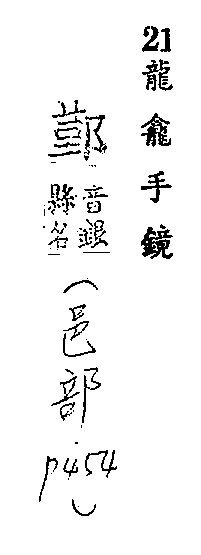 21龍龕手鏡
鄞
音銀
縣名
(邑部p454)